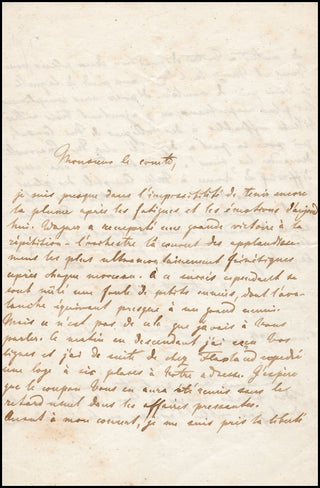 Monsieur le comte,
je suis presque dans l'impossibilité de tenir encore
la plume après les fatigues et les émotions d'aujourd'
hui. Wagner a remporté une grande victoire à la
répétition – l'orchestre le couvrit des applaudisse-
mens les plus frénétiques
après chaque morceau. à cependant se
sont mêlé une foule de petits ennuis, dont l'ava-
lanche équivaut presque à un grand ennui.
Mais ce n'est pas de cela que j'avais à Vous
parler. le matin en descendant j'ai reçu Vos
lignes et j'ai de suite de chez Flaxland expédié
une loge à six places à Votre adresse. J'espère
que le coupon Vous en aura été remis sans le
retard dans les affaires pressantes.
Quant à mon concert, je me suis pris la liberté